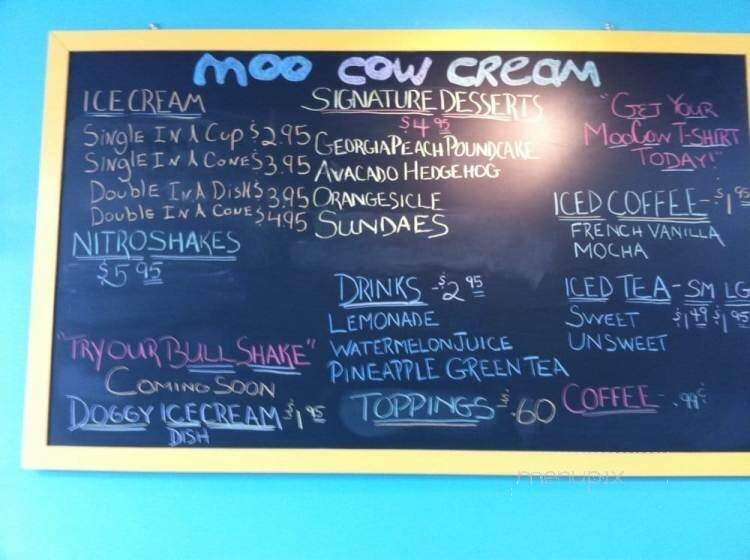 MOO COW CREAM
ICE CREAM
SINGLE IN A CUP $2.95
SINGLE IN A CONE $3.95
DOUBLE IN A DISH $3.95
DOUBLE IN A CONE $4.95
NITROSHAKES
$5.95
"TRY OUR BULL SHAKE"
COMING SOON
DOGGY ICE CREAM -$1.95
DISH
SIGNATURE DESSERTS
$4.95
GEORGIA PEACH POUNDCAKE
AVACADO HEDGEHOG
ORANGESICLE
SUNDAES
DRINKS -$2.95
LEMONADE
WATERMELON JUICE
PINEAPPLE GREEN TEA
TOPPINGS -$.60
"GET YOUR
MOOCOW T-SHIRT
TODAY!"
ICED COFFEE -$1.95
FRENCH VANILLA
MOCHA
ICED TEA - SM LG
SWEET $1.49 $1.95
UNSWEET
COFFEE - .99¢
menupix